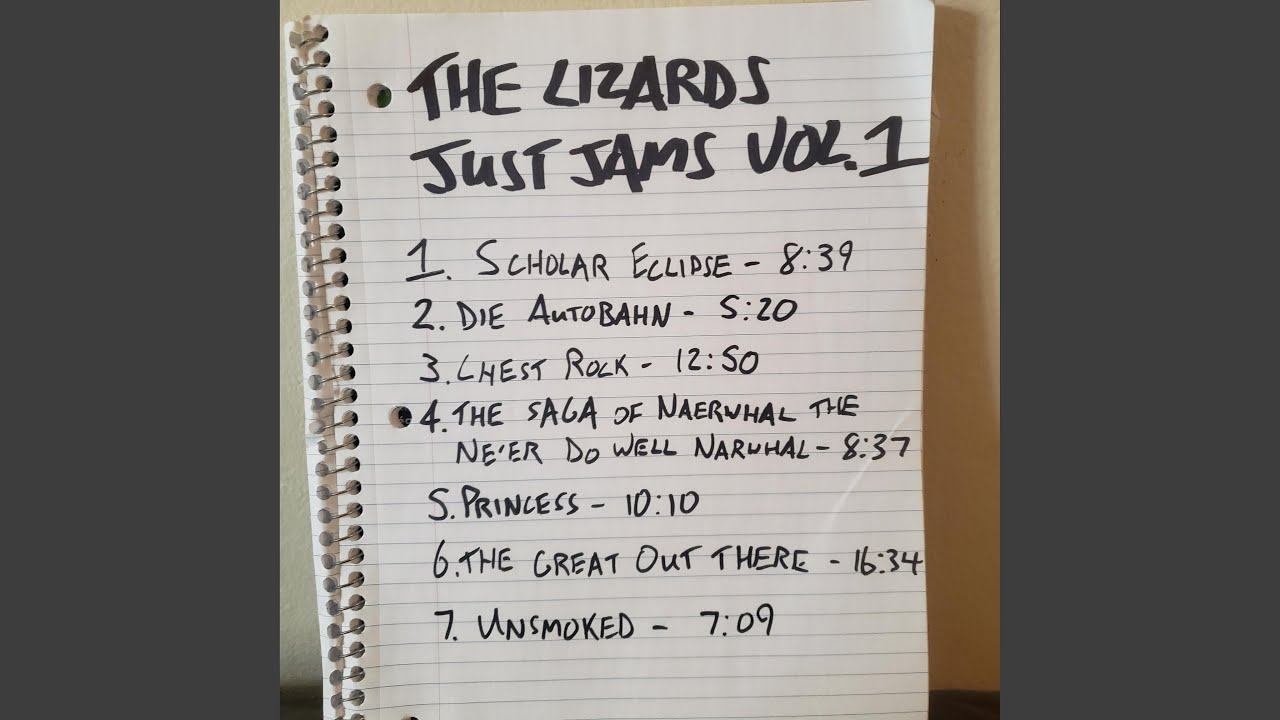 THE LIZARDS
JUST JAMS VOL. 1
1. SCHOLAR ECLIPSE - 8:39
2. DIE AUTOBAHN - 5:20
3. CHEST ROCK - 12:50
4. THE SAGA OF NAERWHAL THE
NE'ER DO WELL NARWHAL - 8:37
5. PRINCESS - 10:10
6. THE GREAT OUT THERE - 16:34
7. UNSMOKED - 7:09